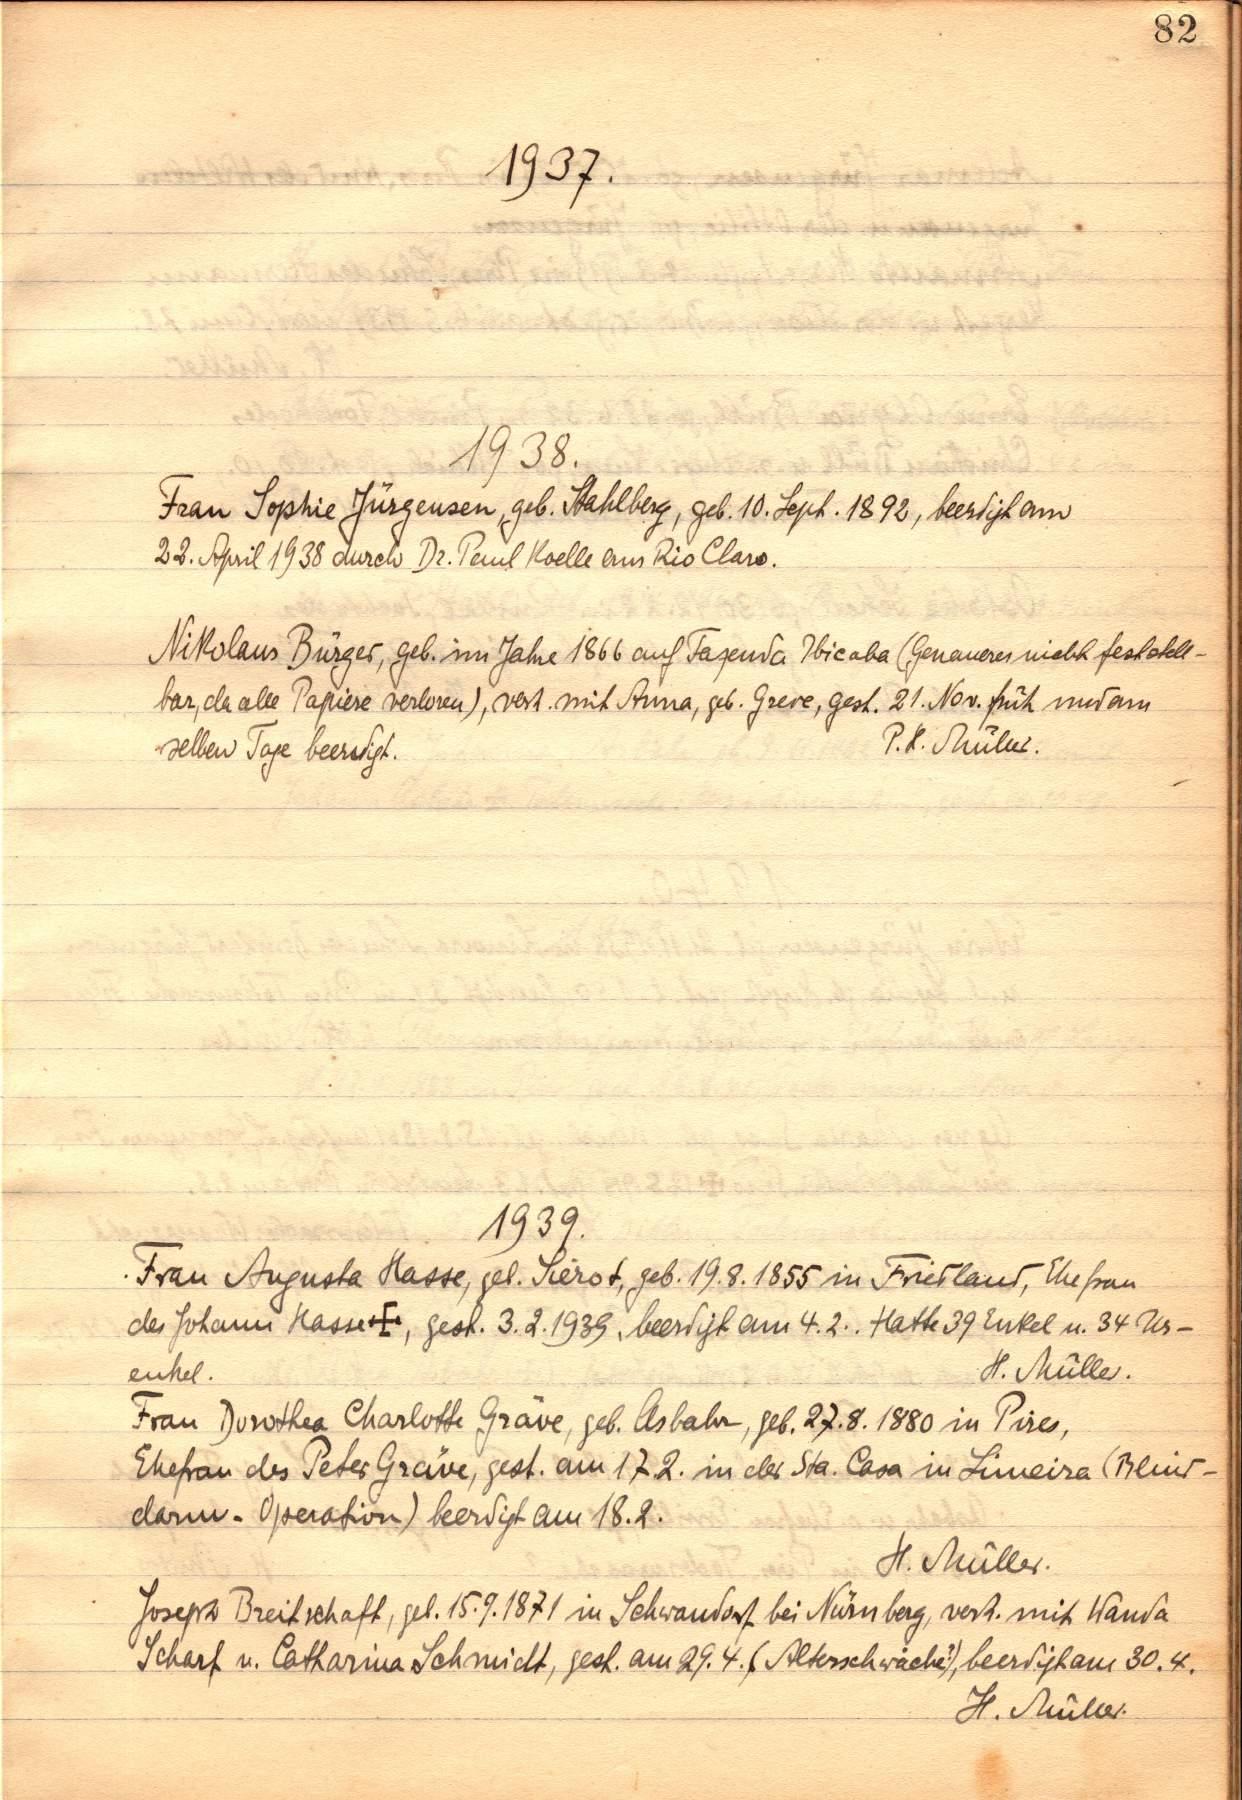 82
1937.
1938.
Frau Sophie Jürgensen, geb. Stahlberg, geb. 10. Sept. 1892, beerdigt am
22. April 1938 durch Dr. Paul Koelle aus Rio Claro.
Nikolaus Bürger, geb. im Jahre 1866 auf Fazenda Ibicaba (Genaueres nicht feststell-
bar, da alle Papiere verloren), verh. mit Anna, geb. Greve, gest. 21. Nov. früh und am
selben Tage beerdigt. P. H. Müller.
1939.
Frau Augusta Hasse, geb. Sierot, geb. 19.8.1855 in Friedland, Ehefrau
des Johann Hasse +, gest. 3.2.1939, beerdigt am 4.2.. Hatte 39 Enkel u. 34 Ur-
enkel. H. Müller.
Frau Dorothea Charlotte Gräve, geb. Asbahr, geb. 27.8.1880 in Pires,
Ehefrau des Peter Gräve, gest. am 17.2. in der Sta. Casa in Limeira (Blind-
darm-Operation) beerdigt am 18.2.
H. Müller.
Joseph Breitschaft, geb. 15.9.1871 in Schwandorf bei Nürnberg, verh. mit Wanda
Scharf u. Catharina Schmidt, gest. am 29.4. (Altersschwäche?), beerdigt am 30.4.
H. Müller.